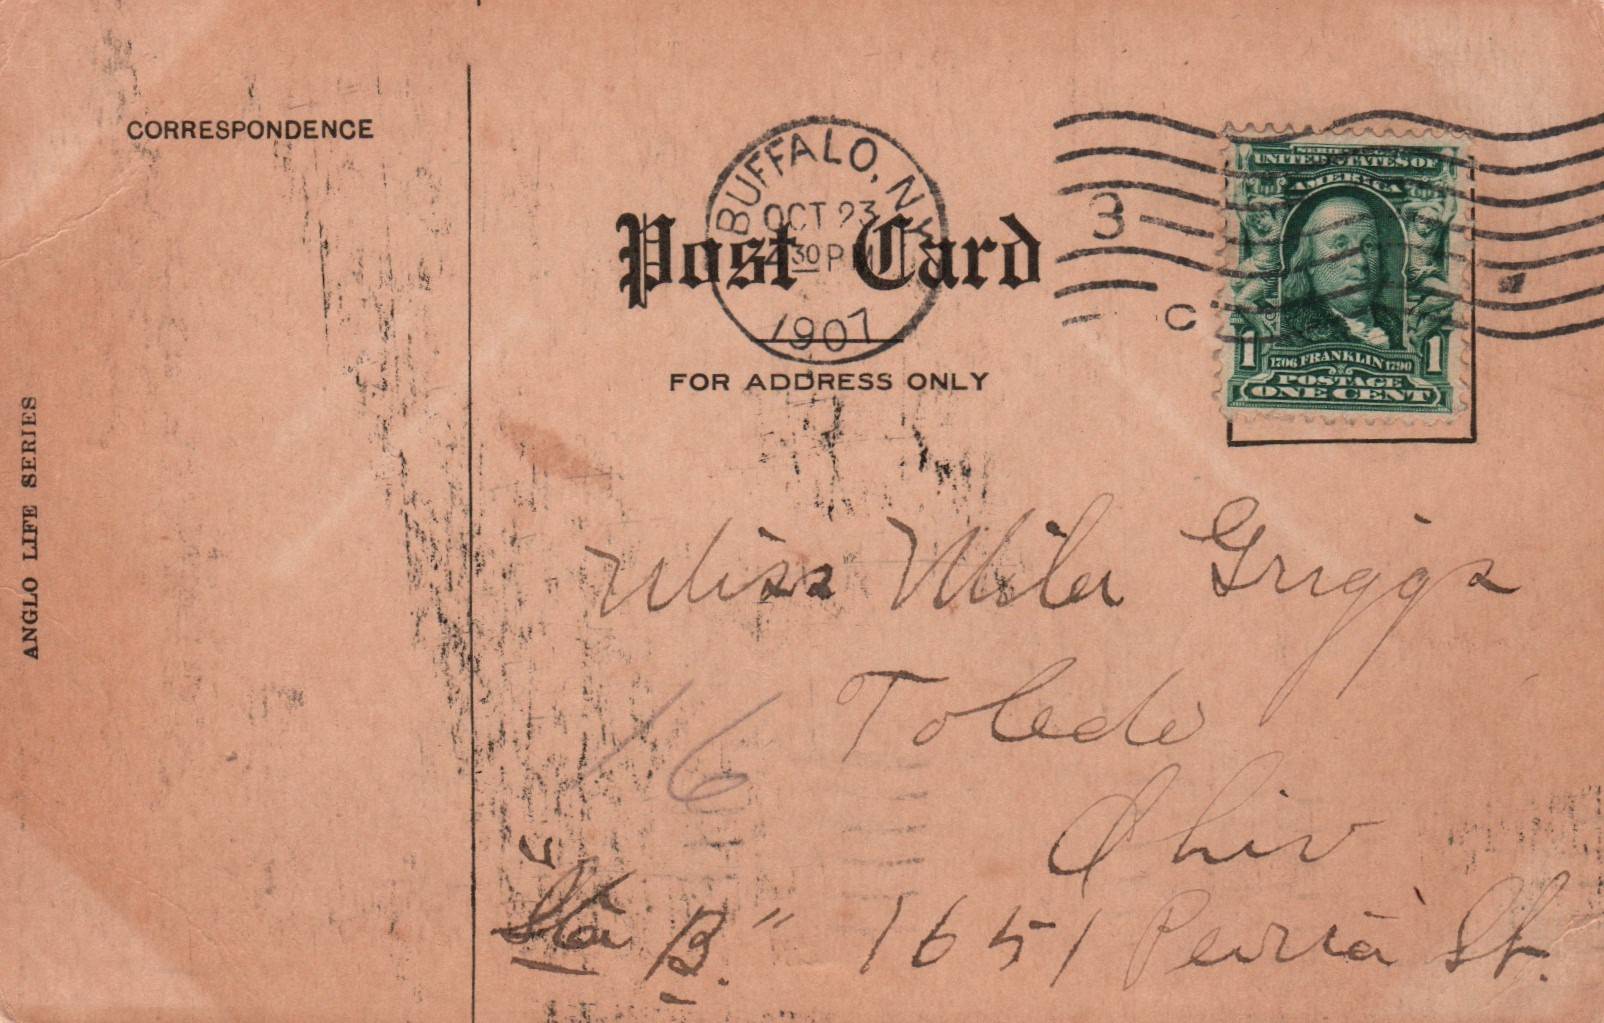 CORRESPONDENCE
BUFFALO, N.Y.
OCT 23
30 P M
1907
Post Card
FOR ADDRESS ONLY
3
C
SERIES
UNITED STATES OF
AMERICA
1 1706 FRANKLIN 1790 1
POSTAGE
ONE CENT
ANGLO LIFE SERIES
Miss Mila Griggs
Toledo
16
Ohio
Sta B." 1651 Peoria St.